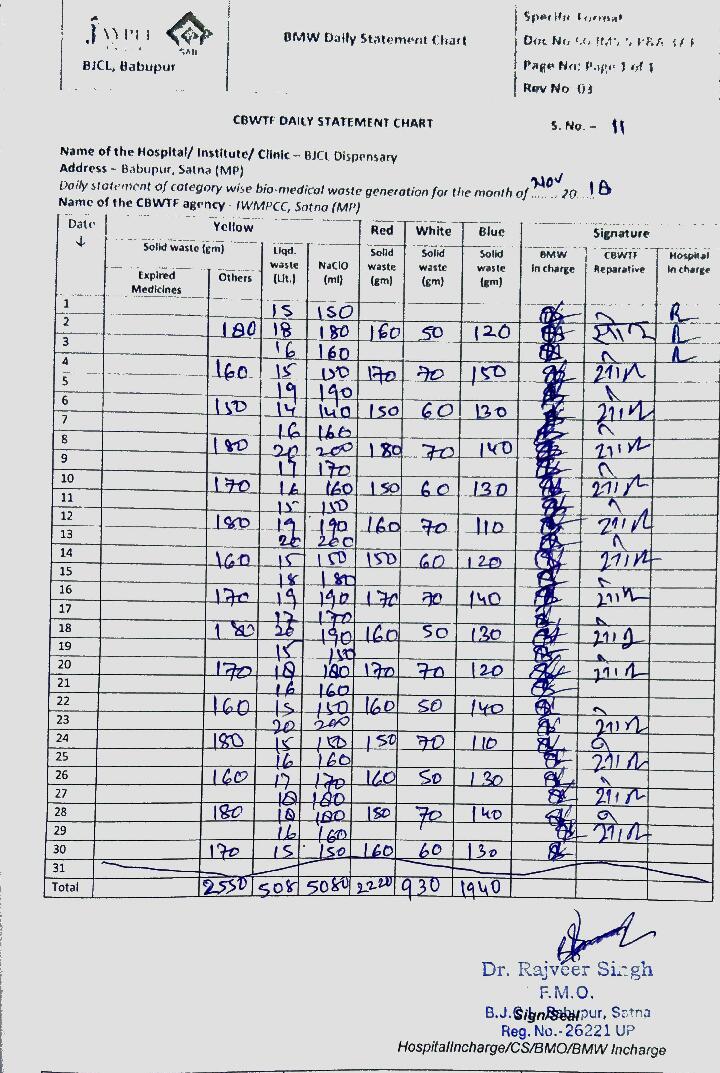 JAYPEE
BJCL, Babupur
BMW Daily Statement Chart
Specific Format
Page No: Page 1 of 1
Rev No 03
CBWTF DAILY STATEMENT CHART
S. No. - 11
Name of the Hospital/ Institute/ Clinic – BJCL Dispensary
Address – Babupur, Satna (MP)
Daily statement of category wise bio-medical waste generation for the month of Nov 20 18
Name of the CBWTF agency - IWMPCC, Satna (MP)
Date ↓ Yellow Red White Blue Signature
Solid waste (gm) Liqd. waste (Lit.) NaClO (ml) Solid waste (gm) Solid waste (gm) Solid waste (gm) BMW In charge CBWTF Reparative Hospital In charge
Expired Medicines Others
1 15 150 R
2 180 18 180 160 50 120 R
3 16 160 R
4 160 15 150 170 70 150
5 19 190
6 150 14 140 150 60 130
7 16 160
8 180 20 200 180 70 140
9 17 170
10 170 16 160 150 60 130
11 15 150
12 180 19 190 160 70 110
13 20 200
14 160 15 150 150 60 120
15 18 180
16 170 19 190 170 70 140
17 17 170
18 180 20 190 160 50 130
19 15 150
20 170 18 180 170 70 120
21 16 160
22 160 15 150 160 50 140
23 20 200
24 180 15 150 150 70 110
25 16 160
26 160 17 170 160 50 130
27 18 180
28 180 18 180 150 70 140
29 16 160
30 170 15 150 160 60 130
31
Total 2550 508 5080 2220 930 1940
Dr. Rajveer Singh
F.M.O.
B.J.C.L. Babupur, Satna
Sign/Seal
Reg. No.- 26221 UP
HospitalIncharge/CS/BMO/BMW Incharge